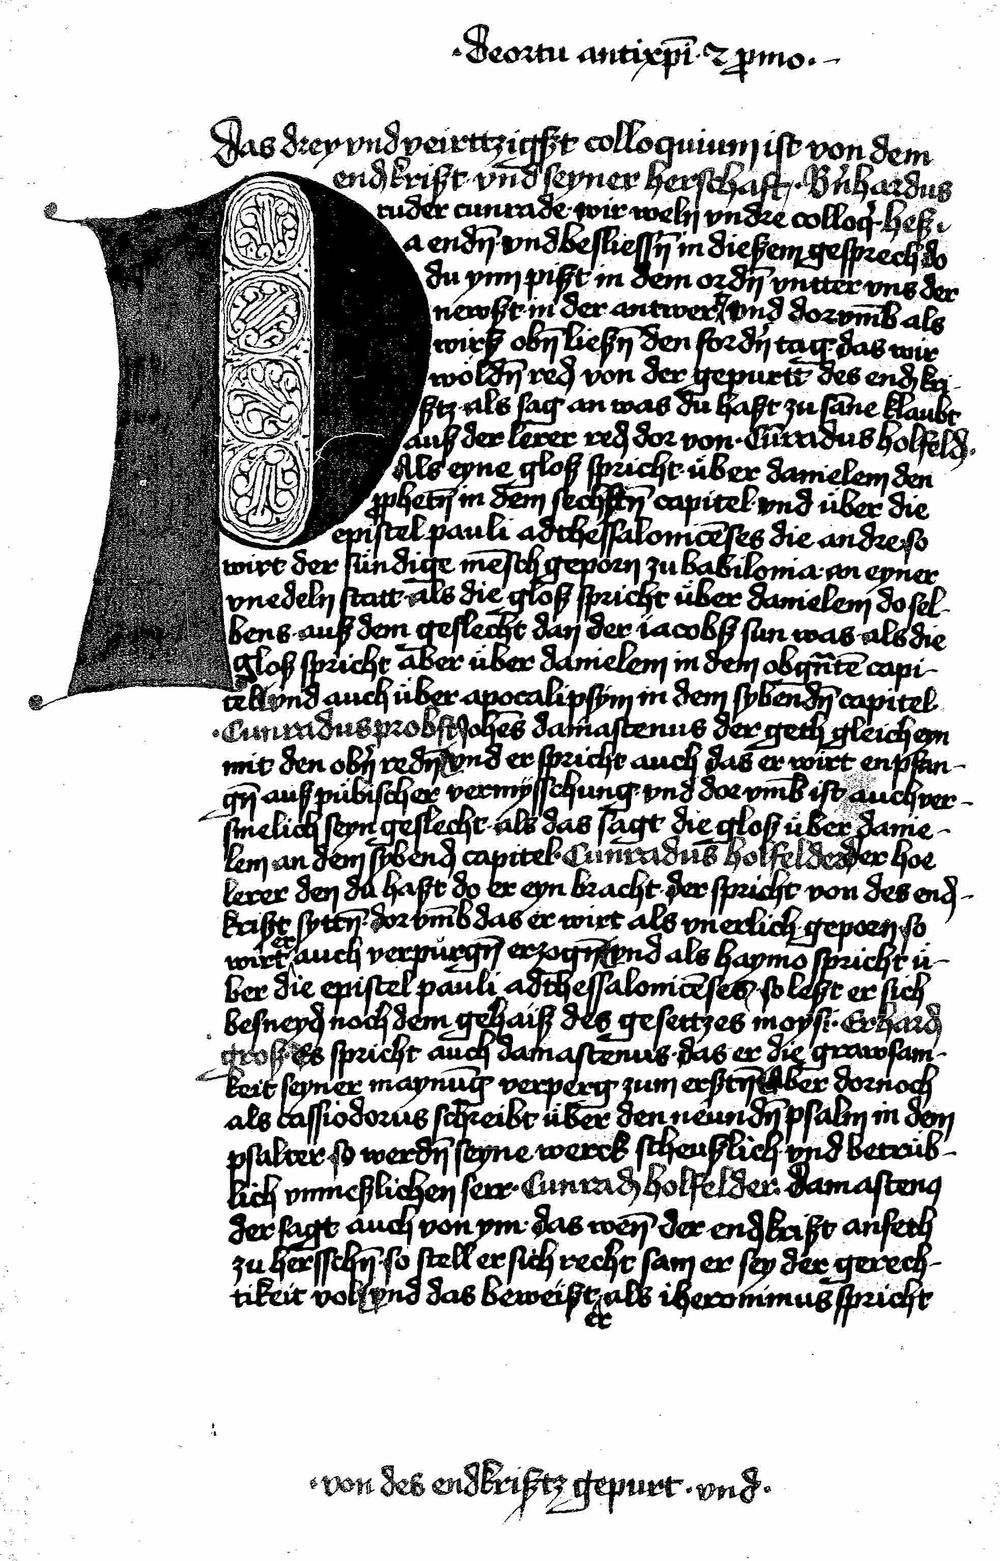 ·De ortu antixp̄i· ⁊ p̄mo·
Das drey vnd veirttzigszt colloquium ist von dem
endkriszt· vnd seyner herschafft· Bn̄hardus
ruder cunrade· wir weln vndre colloq̄· hesz
a endn̄· vnd besliessn̄ in dieszem gesprech do
du ynn piszt in dem ordn̄ vntter vns der
newszt· in der antwert vnd dorvm̄b als
wirsz obn̄ lieszn̄ den fordn̄ tag· das wir
woldn̄ red von der gepurtt des endkri-
sztz· als sag an was du haszt zu sāne klaubt
ausz der lerer red dor von· Cūradus holfeld·
Als eyne glosz spricht· über danielem den
pphetn̄ in dem sechstn̄ capitel· vnd über die
epistel pauli ad thessalonicēses die andre· so
wirt der sündige mēsch geporn zu babilonia· an eyner
vnedeln statt· als die glosz spricht über danielem do sel-
bens· ausz dem geslecht dan der iacobsz sun was· als die
glosz spricht aber über danielem in dem obgn̄tē capi-
tel vnd auch über apocalipsym in dem sybendn̄ capitel
·Cunradus probst Johēs damascenus der geth gleich eyn
mit den obn̄ redn̄ vnd er spricht auch das er wirt enpfan-
gn̄ ausz pübischer vermysschung· vnd dor vm̄b ist auch ver-
smelich seyn geslecht· als das sagt die glosz über danie-
lem an dem sybend capitel· Cunradus holfelder der hoe
lerer den du haszt do er eyn bracht· der spricht von des end-
kriszt syttn̄· dor vm̄b das er wirt als vnerlich geporn· so
wirt er auch verpurgn̄ erzogn̄ vnd als haymo spricht ü-
ber die epistel pauli ad thessalonicēses· so leszt er sich
besneyd noch dem gehaisz des gesettzes moysi· Erhard
grosz· Es spricht auch damascenus· das er die grawsam-
keit seyner maynūg verperg zum ersztn̄ Aber dornoch
als cassiodorus schreibt über den neundn̄ psalm in dem
psalter· so werdn̄ seyne werck scheuszlich· vnd betrüb-
lich vnmeszlichen serr· Cunrad holfelder· damascenq
der sagt auch von ym· das wen̄ der endkriszt anfeth
zu hersschn̄· so stell er sich recht sam er sey der gerech-
tikeit vol vnd das beweiszt er als iheronimus spricht
·von des endkrisztz gepurt· vnd·